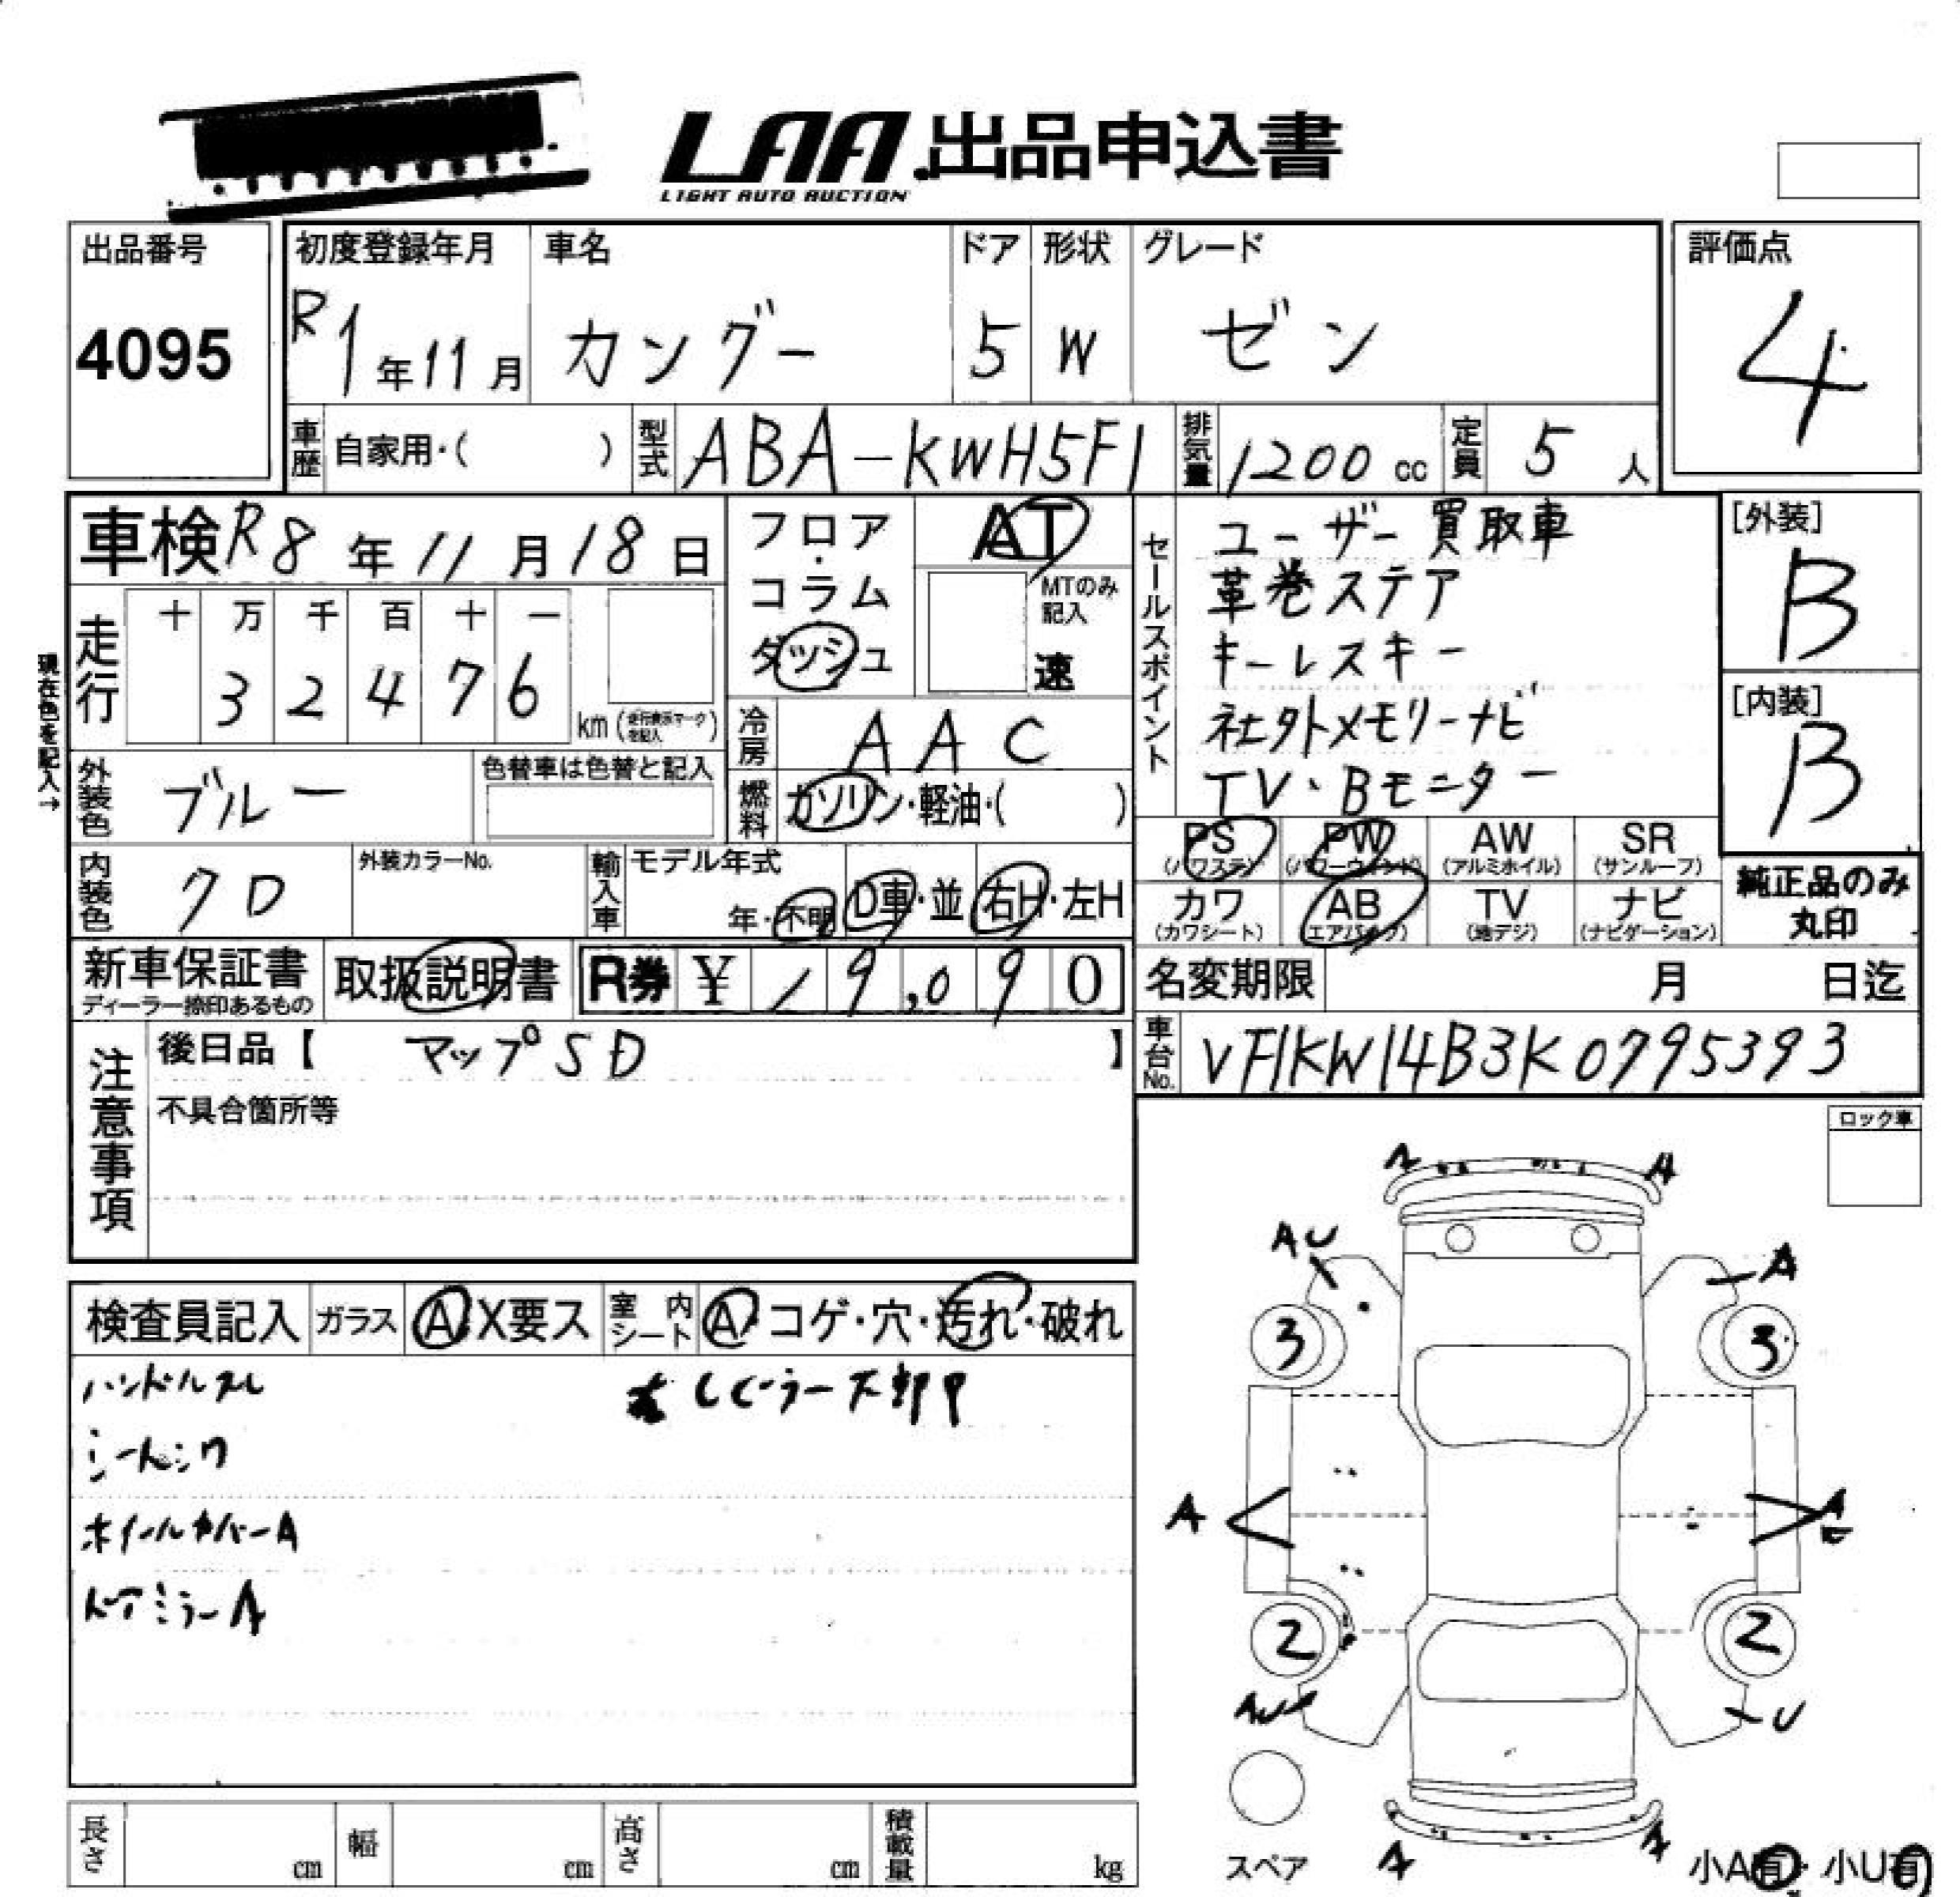 LAA 出品申込書
LIGHT AUTO AUCTION
出品番号
4095
初度登録年月
R1年11月
車名
カングー
ドア
5
形状
W
グレード
ゼン
評価点
4
車歴 自家用・( )
型式 ABA-KWH5F1
排気量 1200cc
定員 5人
車検 R8年11月18日
フロア・コラム
ダッシュ
AT
MTのみ記入
速
現在色を記入→
走行
十 万 千 百 十 一
3 2 4 7 6
km (走行表示マークを記入)
冷房 AAC
外装色 ブルー
色替車は色替と記入
燃料 ガソリン・軽油・( )
内装色 クロ
外装カラーNo.
輸入車 モデル年式
年・不明
D車・並
右H・左H
セールスポイント
ユーザー買取車
革巻ステア
キーレスキー
社外メモリーナビ
TV、Bモニター
[外装]
B
[内装]
B
PS AW SR PW
(パワステ) (パワーウィンド) (アルミホイル) (サンルーフ)
カワ AB TV ナビ
(カワシート) (エアバッグ) (地デジ) (ナビゲーション)
純正品のみ
丸印
新車保証書
ディーラー捺印あるもの
取扱説明書
R券 ¥ 19,090
名変期限 月 日迄
車台No. VF1KW14B3K0795393
注意事項
後日品【 マップSD 】
不具合箇所等
ロック車
検査員記入 ガラス A X要ス 室内シート A コゲ・穴・汚れ・破れ
ハンドルスレ
シートシワ
ホイールカバーA
ドアミラーA
A A
AU A
3 3
A A
2 2
U
A A
スペア
小A有 小U有
長さ cm 幅 cm 高さ cm 積載量 kg